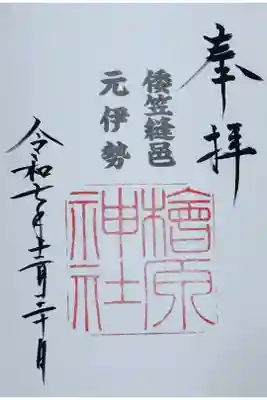 奉拝
倭笠縫邑
元伊勢
檜原
神社
令和七年十二月二十日